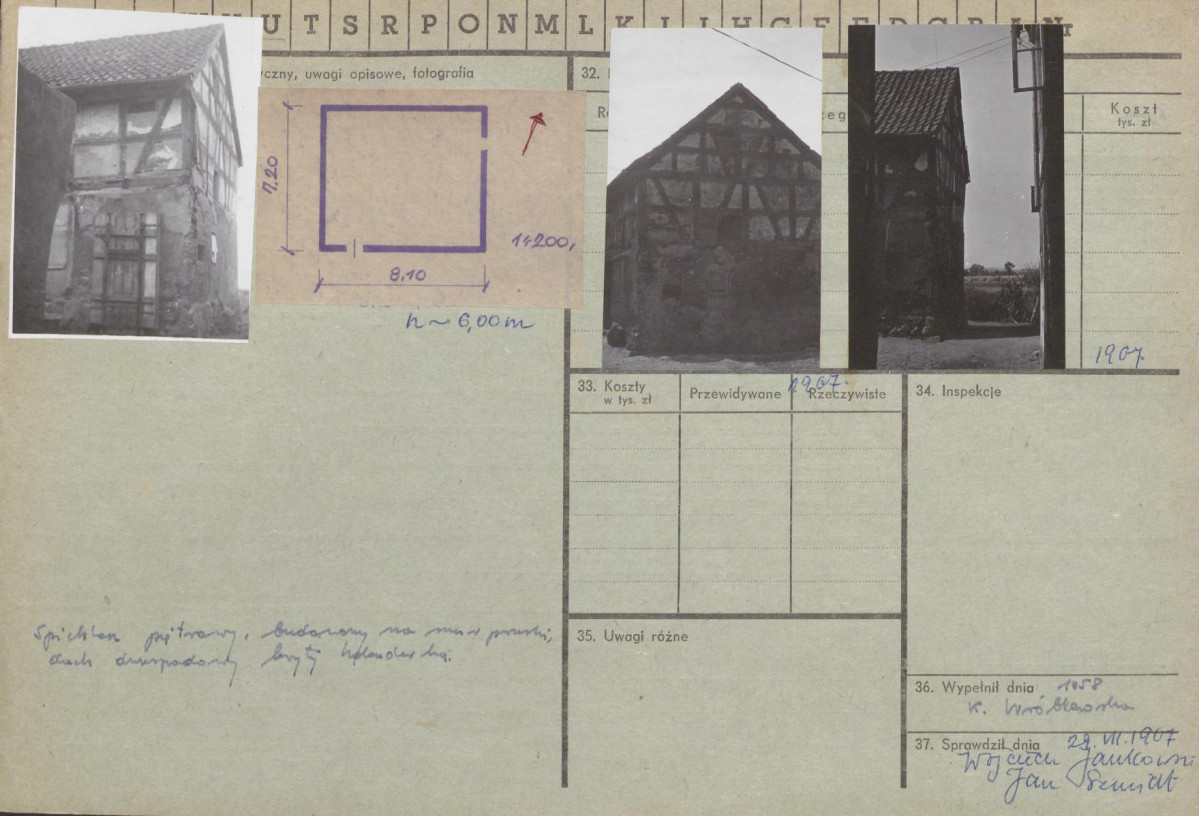 U T S R P O N M L K J I H G F E D C B A Nr
yczny, uwagi opisowe, fotografia
32.
Koszt
tys. zł
7.20
1:200,
8.10
h ~ 6,00 m
1967.
1967.
33. Koszty
w tys. zł
Przewidywane
Rzeczywiste
34. Inspekcje
Spichlerz piętrowy, budowany na mur pruski,
dach dwuspadowy kryty holenderką.
35. Uwagi różne
36. Wypełnił dnia 1958
K. Wróblewska
37. Sprawdził dnia 29.VII.1967
Wojciech Jankowski
Jan Szmidt